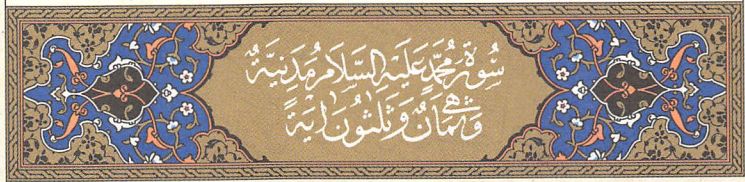 سُورَةُ مُحَمَّدٍ عَلَيْهِ السَّلَامُ مَدَنِيَّةٌ
وَهِيَ ثَمَانٌ وَثَلٰثُونَ اٰيَةً